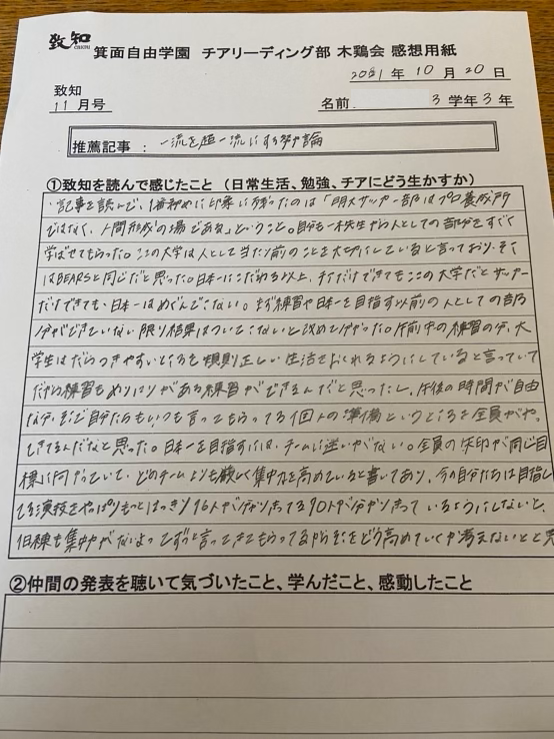 致知
箕面自由学園 チアリーディング部 木鶏会 感想用紙
2021 年 10 月 20 日
致知
11 月号
名前 3 学年 3 年
推薦記事 : 一流を超一流にする努力論
①致知を読んで感じたこと (日常生活、勉強、チアにどう生かすか)
記事を読んで、1番初めに印象に残ったのは「明大サッカー部はプロ養成所
ではなく、人間形成の場である」ということ。自分も一年生から人としての部分をすごく
学ばせてもらった。この大学は人として当たり前のことを大切にしていると言っており、そこ
はBEARSと同じだと思った。日本一にこだわる以上、チアだけできてもここの大学だとサッカー
だけできても、日本一はめぐんでこない。まず練習や日本一を目指す以前の人としての部
分ができていない限り結果はついてこないと改めて分かった。午前中の練習の分、大
学生はだらつきやすいところを規則正しい生活をおくれるようにしていると言っていて
だから練習もめりはりがある練習ができるんだと思ったし、午後の時間が自由
な分、そこで自分たちもいつも言ってもらってる1個人の準備というところを全員がや
できてるんだなと思った。日本一を目指すには、チームに迷いがない。全員の矢印が同じ目
標に向かっていて、どのチームよりも厳しく集中力を高めていると書いてあり、今の自分たちは目指し
てる演技をやっぱりもっとはっきり16人で分かり合ってる90人で分かり合っているようにしないと、
練も集中がないよってずっと言ってきてもらってるからそこをどう高めていくか考えないとと思
②仲間の発表を聴いて気づいたこと、学んだこと、感動したこと